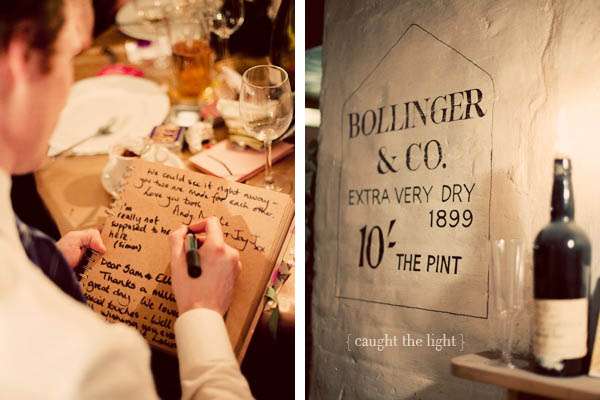 We could see it right away -
you two are made for each other.
Love you both,
Andy
I'm
really not
supposed to be
here
(Simon)
Dear Sam &
Thanks a
great day. We
touches -
BOLLINGER
& CO.
EXTRA VERY DRY
1899
10/- THE PINT
{ caught the light }